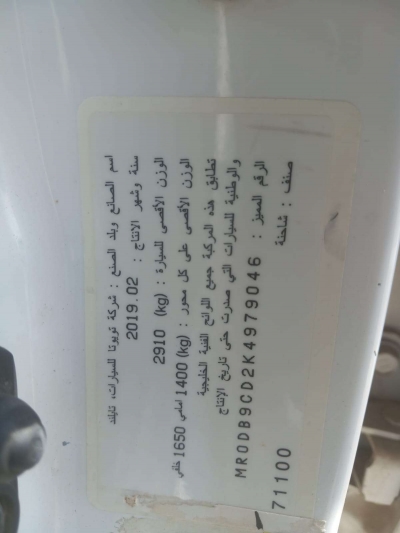 اسم الصانع وبلد الصنع : شركة تويوتا للسيارات، تايلند
سنة وشهر الانتاج : 2019.02
الوزن الأقصى للسيارة : (kg) 2910
الوزن الأقصى على كل محور : (kg) 1400 امامى 1650 خلفي
تطابق هذه المركبة جميع اللوائح الفنية الخليجية
والوطنية للسيارات التي صدرت حتى تاريخ الإنتاج
الرقم المميز : MR0DB9CD2K4979046
صنف : شاحنة
71100